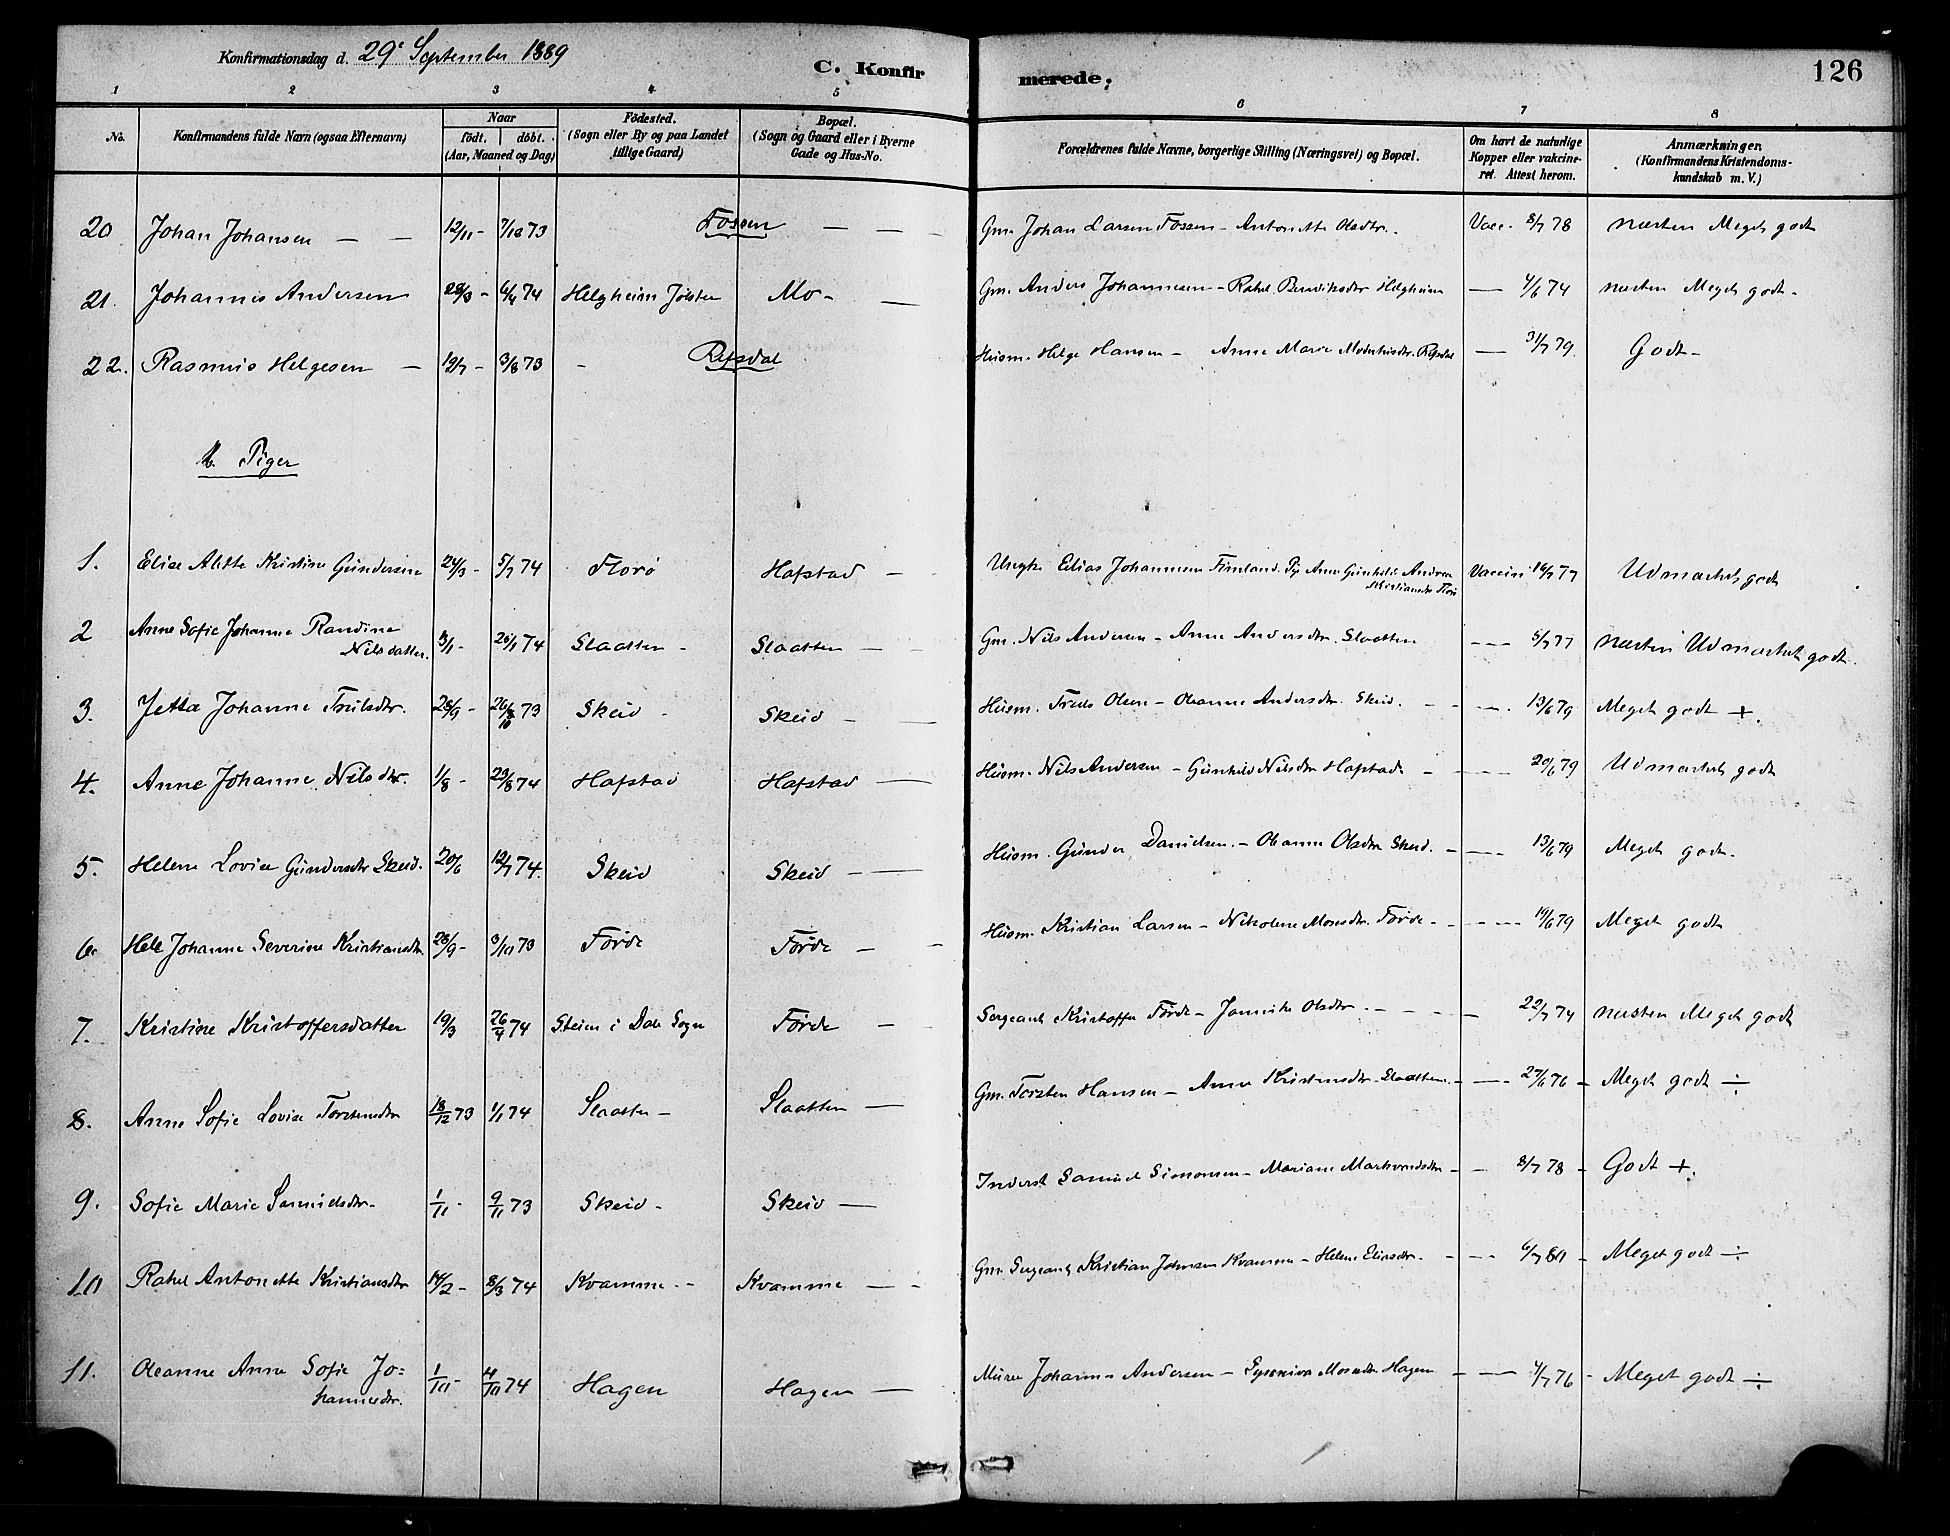 Konfirmationsdag d. 29e September 1889
C. Konfir
merede.
126
1 2 3 4 5 6 7 8
No. Konfirmandens fulde Navn (ogsaa Efternavn) Naar födt. döbt. (Aar, Maaned og Dag) Födested. (Sogn eller By og paa Landet tillige Gaard) Bopæl. (Sogn og Gaard eller i Byerne Gade og Hus-No. Forældrenes fulde Navne, borgerlige Stilling (Næringsvei) og Bopæl. Om havt de naturlige Kopper eller vakcineret. Attest herom. Anmærkninger. (Konfirmandens Kristendomskundskab m. V.)
20 Johan Johansen — — 12/11 - 7/12 73 Fossen — — — Gm. Johan Larsen Fossen - Antonette Olsdtr. Vacc. 8/7 78 næsten Meget godt
21. Johannes Andersen 28/3 - 6/4 74 Helgheim Jölster Mo - — Gm. Anders Johannesen - Rahel Bendiksdtr Helgheim — 4/6 74 næsten Meget godt -
22. Rasmus Helgesen — 12/7 - 3/8 73 - Refsdal Husm. Helge Hansen - Anne Marie Refsdal — 31/7 79. Godt -
b. Piger
1. Elise Alette Kristine Gundersen 24/3 - 5/7 74 Florö Hafstad — Ungk. Elias Johannesen Fimland. Pig. Anne Gunhild Andrea
Kristiansdtr Florö Vaccin 16/7 77 Udmærket godt
2 Anne Sofie Johanne Randine
Nilsdatter. 3/1 - 25/1 74 Slaatten - Slaatten — Gm. Nils Andersen - Anne Andersdtr. Slaatten — 5/7 77 næsten Udmærket godt.
3. Jetta Johanne Trulsdtr. 28/9 - 26/10 73 Skeid - Skeid — — Husm. Truls Olsen - Oleanne Andersdtr. Skeid. - - - 13/6 79 Meget godt +.
4. Anne Johanne Nilsdtr. 1/8 - 23/8 74 Hafstad Hafstad — Husm. Nils Andersen - Gunhild Nilsdtr Hafstad - — 20/6 79 Udmærket godt
5. Helene Lovise Gundersdtr Skeid. 20/6 12/7 74. Skeid Skeid — — Husm. Gunder Danielsen. - Oleanne Olsdtr Skeid. - — 13/6 79 Meget godt.
6. Johanne Severine Kristiansdtr. 28/9 - 3/10 73 Förde Förde — - Husm. Kristian Larsen - Nikoline Monsdtr. Förde - - — 19/6 79 Meget godt
7. Kristine Kristoffersdatter 19/3 26/4 74 Steien i Dale Sogn Förde — Sergeant Kristoffer Förde - Jannike Olsdtr. - - - - 22/7 74 næsten Meget godt
8. Anne Sofie Lovise Torstensdtr 18/12 73 1/1 74 Slaatten - Slaatten — Gm. Torsten Hansen - Anne Kristensdtr. Slaatten. - — 27/6 76 - Meget godt ÷
9. Sofie Marie Samuelsdtr. 1/11 - 9/11 73 Skeid - Skeid — Inderst Samuel Simonsen - Mariane Markvardsdtr - - 8/7 78 - Godt +.
10 Rahel Antonette Kristiansdtr 14/2 - 8/3 74 Kvamme - - Kvamme — - Gm. Sergeant Kristian Johnsen Kvamme - Helene Eliasdtr. - — 6/7 80 - Meget godt ÷
11. Oleanne Anne Sofie Jo=
hannesdtr. 1/10 - 4/10 74 Hagen Hagen — Murer Johannes Andersen - Synneva Monsdtr Hagen - — 4/7 76 - Meget godt ÷